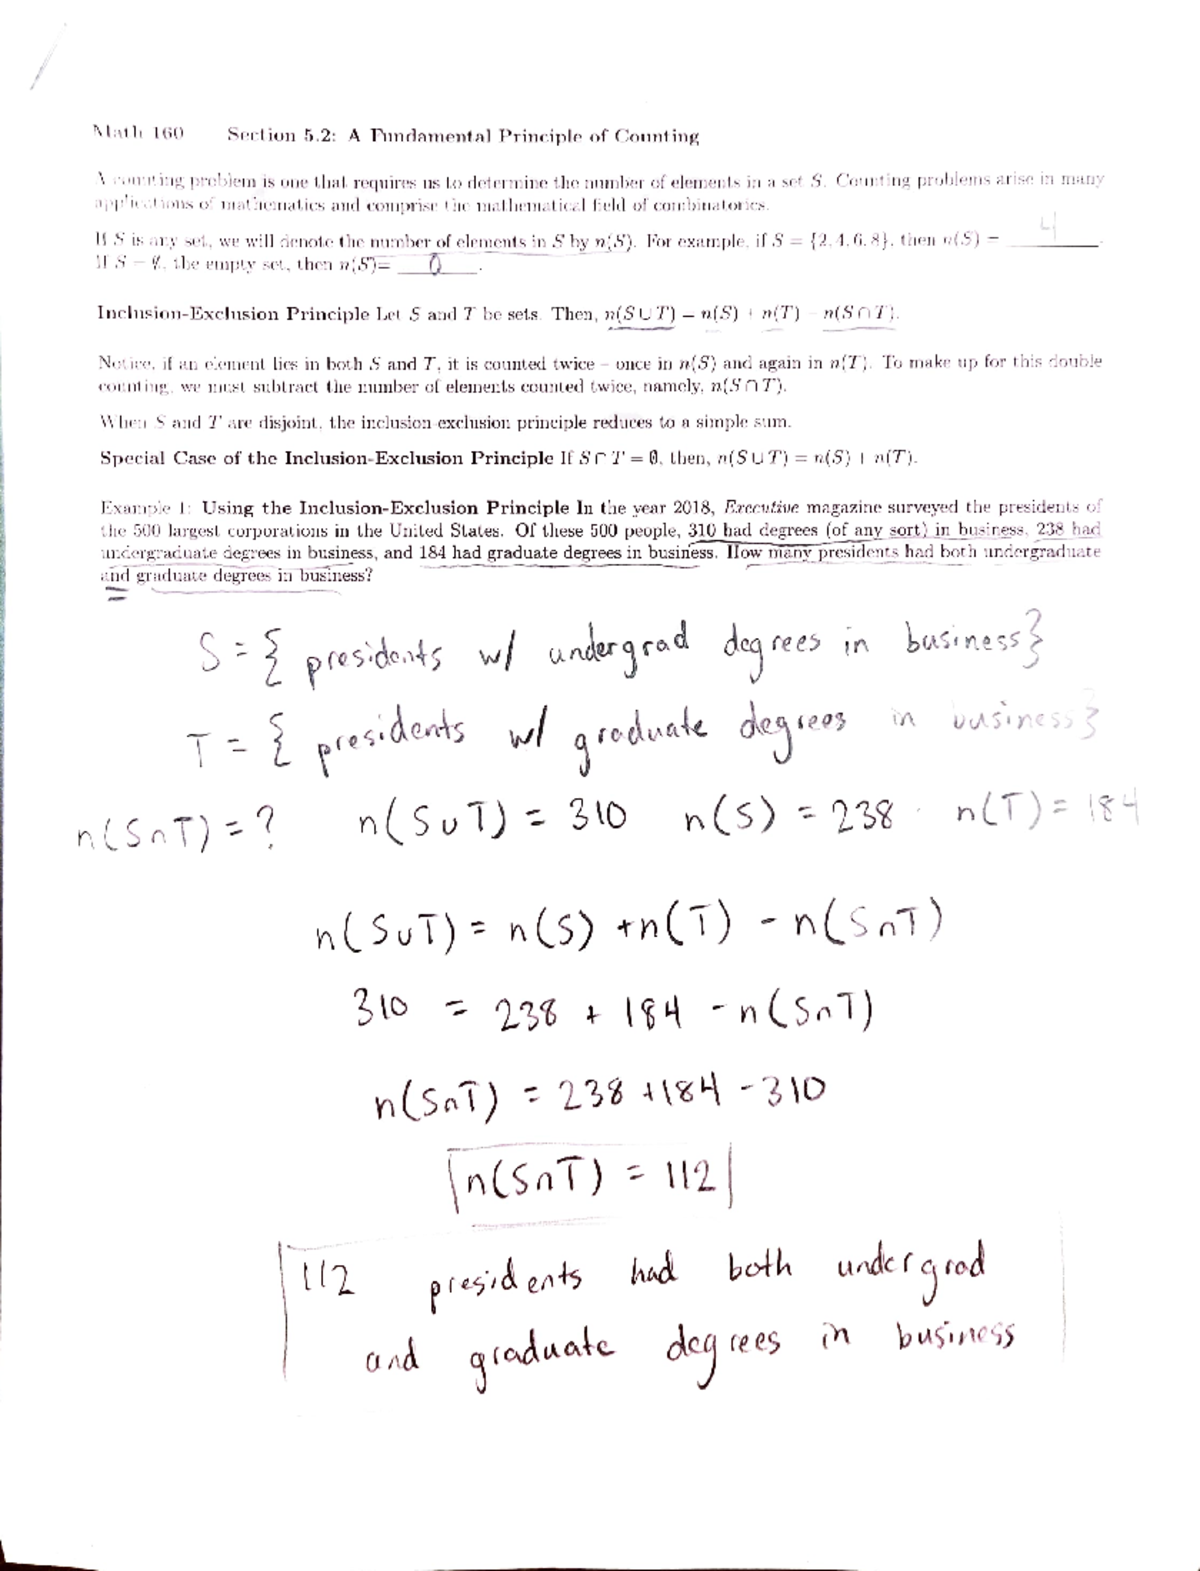 Math 160 Section 5.2: A Fundamental Principle of Counting
A counting problem is one that requires us to determine the number of elements in a set S. Counting problems arise in many
applications of mathematics and comprise the mathematical field of combinatorics.
If S is any set, we will denote the number of elements in S by n(S). For example, if S = {2, 4, 6, 8}, then n(S) = 4.
If S = ∅, the empty set, then n(S)= 0.
Inclusion-Exclusion Principle Let S and T be sets. Then, n(S ∪ T) = n(S) + n(T) − n(S ∩ T).
Notice, if an element lies in both S and T, it is counted twice – once in n(S) and again in n(T). To make up for this double
counting, we must subtract the number of elements counted twice, namely, n(S ∩ T).
When S and T are disjoint, the inclusion-exclusion principle reduces to a simple sum.
Special Case of the Inclusion-Exclusion Principle If S ∩ T = ∅, then, n(S ∪ T) = n(S) + n(T).
Example 1: Using the Inclusion-Exclusion Principle In the year 2018, Executive magazine surveyed the presidents of
the 500 largest corporations in the United States. Of these 500 people, 310 had degrees (of any sort) in business, 238 had
undergraduate degrees in business, and 184 had graduate degrees in business. How many presidents had both undergraduate
and graduate degrees in business?
S = { presidents w/ undergrad degrees in business}
T = { presidents w/ graduate degrees in business}
n(S∩T) = ? n(S∪T) = 310 n(S) = 238 n(T) = 184
n(S∪T) = n(S) + n(T) - n(S∩T)
310 = 238 + 184 - n(S∩T)
n(S∩T) = 238 + 184 - 310
n(S∩T) = 112
112 presidents had both undergrad
and graduate degrees in business